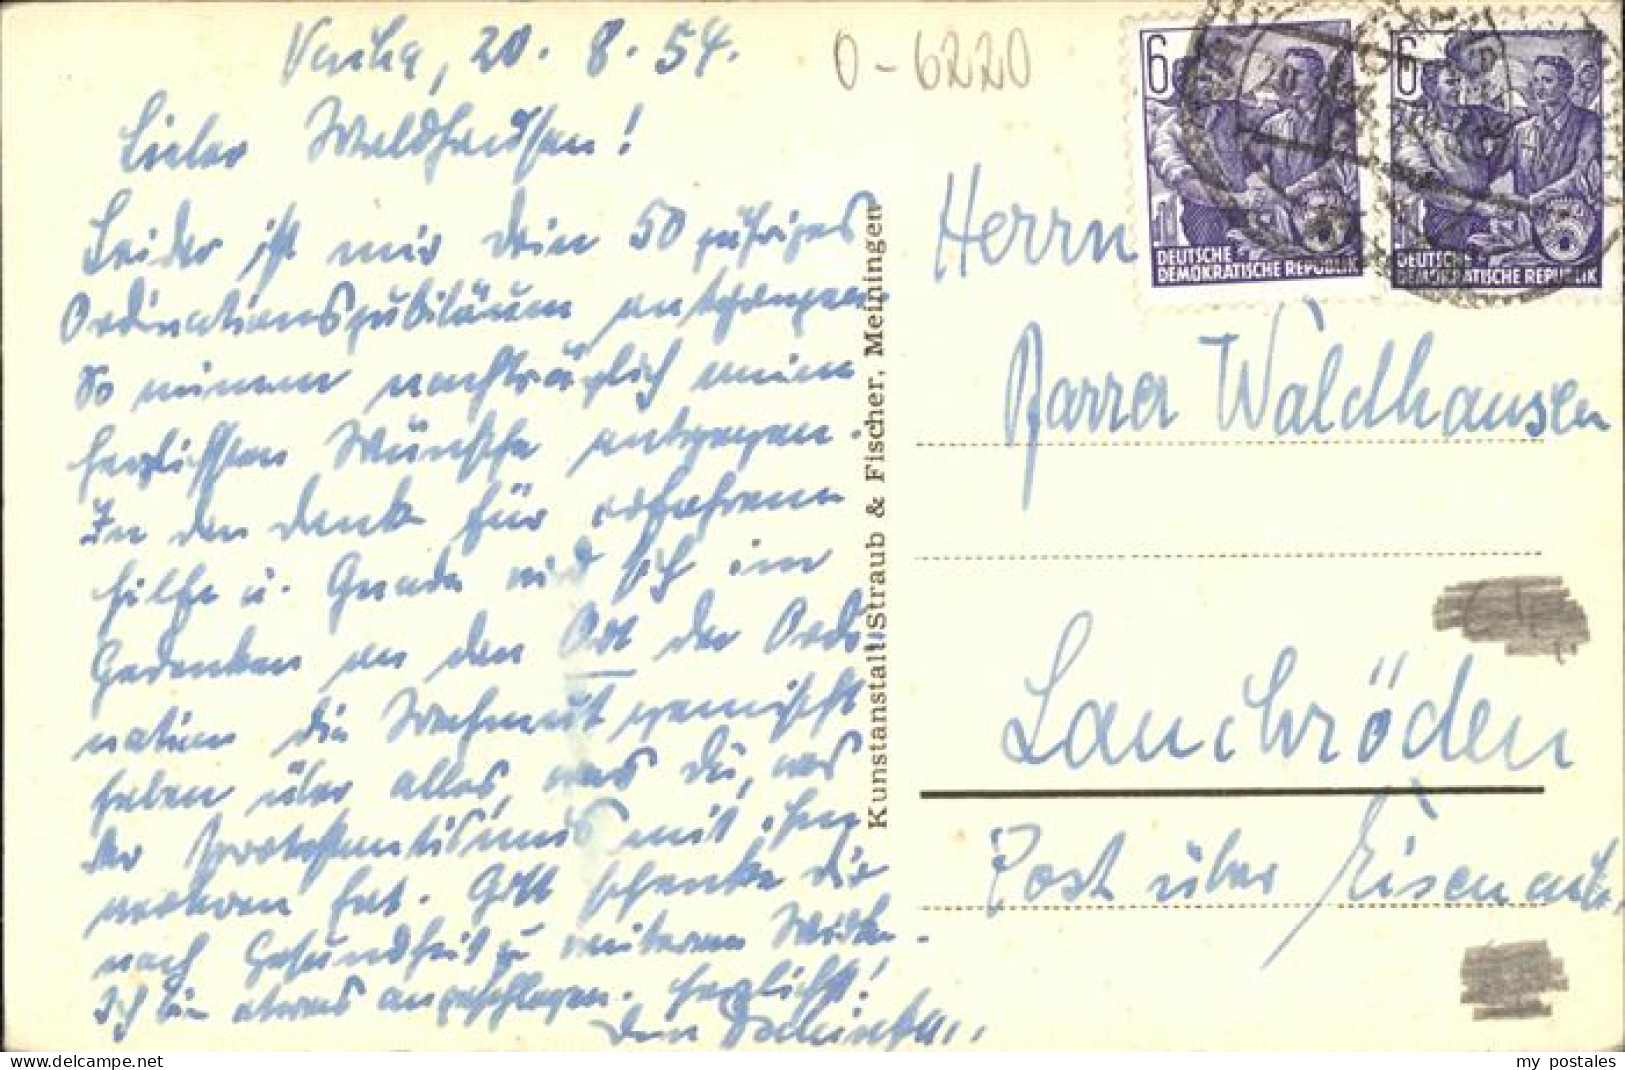 Vacha, 20. 8. 54.
0-6220
Lieber Waldhausen!
Leider ist mir dein 50 jähriges
Ordinationsjubiläum entgangen.
So nimm nachträglich meine
herzlichsten Wünsche entgegen.
In den Dank für erfahrene
Hilfe u. Gnade wird sich im
Gedenken an den Ort der Ordi
nation die Wehmut gemischt
haben über alles, was Du, was
der Protestantismus mit ihm
verloren hat. Gott schenke dir
noch Gesundheit zu weiterem Wirken.
Ich bin etwas angeschlagen. Herzlichst!
Dein
Kunstanstalt Straub & Fischer, Meiningen
6
DEUTSCHE
DEMOKRATISCHE REPUBLIK
6
DEUTSCHE
DEMOKRATISCHE REPUBLIK
Herrn
Pfarrer Waldhausen
Lauchröden
Post über Eisenach
my postales